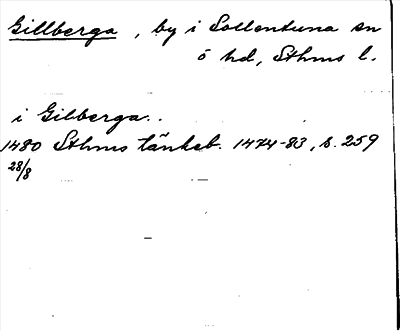 Gillberga, by i Sollentuna sn
ö hd, Sthms l.
i Gilberga..
1480 Sthms tänkeb. 1474-83, s. 259
28/8